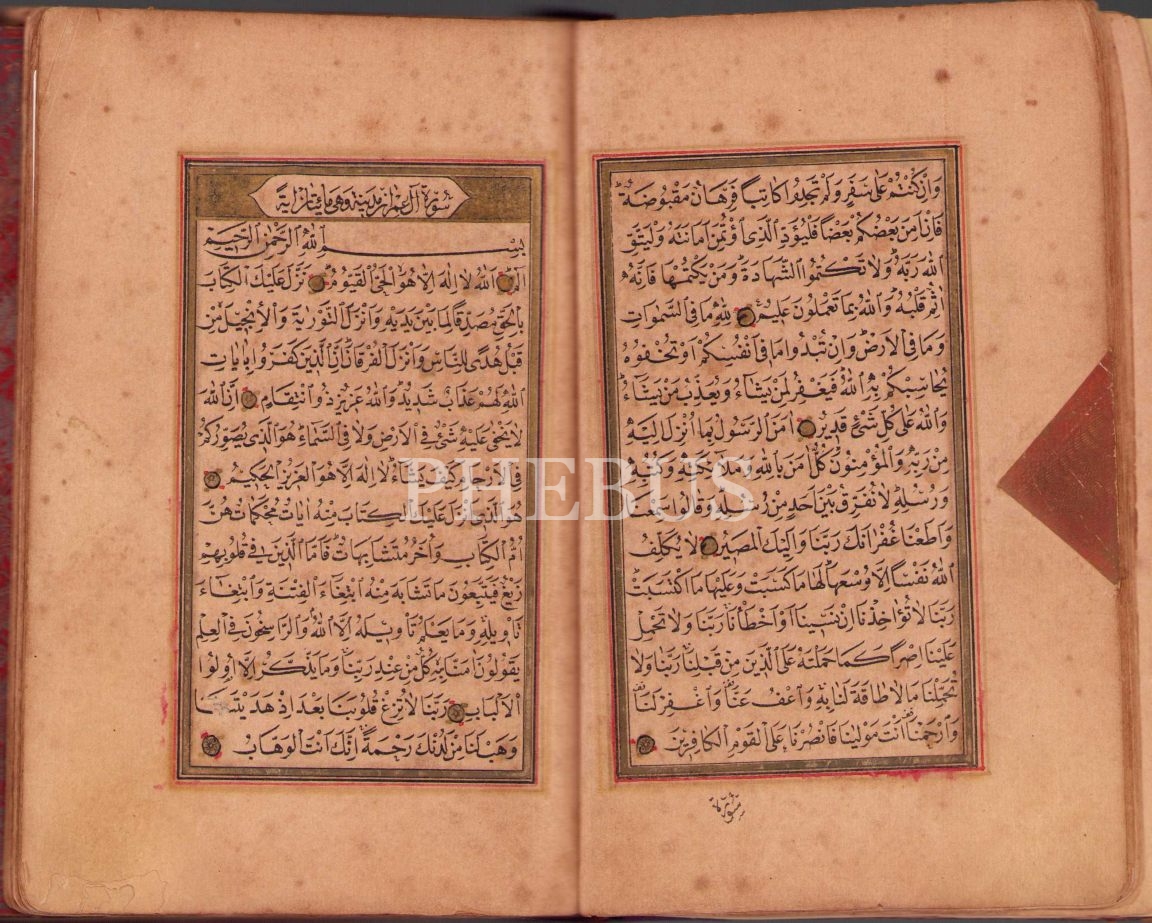 وَاِنْ كُنْتُمْ عَلٰى سَفَرٍ وَلَمْ تَجِدُوا كَاتِبًا فَرِهَانٌ مَقْبُوضَةٌ
فَاِنْ اَمِنَ بَعْضُكُمْ بَعْضًا فَلْيُؤَدِّ الَّذِى اؤْتُمِنَ اَمَانَتَهُ وَلْيَتَّقِ
اللّٰهَ رَبَّهُ وَلَا تَكْتُمُوا الشَّهَادَةَ وَمَنْ يَكْتُمْهَا فَاِنَّهُ
اٰثِمٌ قَلْبُهُ وَاللّٰهُ بِمَا تَعْمَلُونَ عَلِيمٌ لِلّٰهِ مَا فِى السَّمٰوَاتِ
وَمَا فِى الْاَرْضِ وَاِنْ تُبْدُوا مَا فِى اَنْفُسِكُمْ اَوْ تُخْفُوهُ
يُحَاسِبْكُمْ بِهِ اللّٰهُ فَيَغْفِرُ لِمَنْ يَشَاءُ وَيُعَذِّبُ مَنْ يَشَاءُ
وَاللّٰهُ عَلٰى كُلِّ شَىْءٍ قَدِيرٌ اٰمَنَ الرَّسُولُ بِمَا اُنْزِلَ اِلَيْهِ
مِنْ رَبِّهِ وَالْمُؤْمِنُونَ كُلٌّ اٰمَنَ بِاللّٰهِ وَمَلٰئِكَتِهِ وَكُتُبِهِ
وَرُسُلِهِ لَا نُفَرِّقُ بَيْنَ اَحَدٍ مِنْ رُسُلِهِ وَقَالُوا سَمِعْنَا
وَاَطَعْنَا غُفْرَانَكَ رَبَّنَا وَاِلَيْكَ الْمَصِيرُ لَا يُكَلِّفُ
اللّٰهُ نَفْسًا اِلَّا وُسْعَهَا لَهَا مَا كَسَبَتْ وَعَلَيْهَا مَا اكْتَسَبَتْ
رَبَّنَا لَا تُؤَاخِذْنَا اِنْ نَسِينَا اَوْ اَخْطَأْنَا رَبَّنَا وَلَا تَحْمِلْ
عَلَيْنَا اِصْرًا كَمَا حَمَلْتَهُ عَلَى الَّذِينَ مِنْ قَبْلِنَا رَبَّنَا وَلَا
تُحَمِّلْنَا مَا لَا طَاقَةَ لَنَا بِهِ وَاعْفُ عَنَّا وَاغْفِرْ لَنَا
وَارْحَمْنَا اَنْتَ مَوْلٰينَا فَانْصُرْنَا عَلَى الْقَوْمِ الْكَافِرِينَ
سُورَة
سُورَةُ اٰلِ عِمْرَانَ مَدَنِيَّةٌ وَهِىَ مِائَتَا اٰيَةٍ
بِسْمِ اللّٰهِ الرَّحْمٰنِ الرَّحِيمِ
الٓمٓ اَللّٰهُ لَا اِلٰهَ اِلَّا هُوَ الْحَىُّ الْقَيُّومُ نَزَّلَ عَلَيْكَ الْكِتَابَ
بِالْحَقِّ مُصَدِّقًا لِمَا بَيْنَ يَدَيْهِ وَاَنْزَلَ التَّوْرٰيةَ وَالْاِنْجِيلَ مِنْ
قَبْلُ هُدًى لِلنَّاسِ وَاَنْزَلَ الْفُرْقَانَ اِنَّ الَّذِينَ كَفَرُوا بِاٰيَاتِ
اللّٰهِ لَهُمْ عَذَابٌ شَدِيدٌ وَاللّٰهُ عَزِيزٌ ذُو انْتِقَامٍ اِنَّ اللّٰهَ
لَا يَخْفٰى عَلَيْهِ شَىْءٌ فِى الْاَرْضِ وَلَا فِى السَّمَاءِ هُوَ الَّذِى يُصَوِّرُكُمْ
فِى الْاَرْحَامِ كَيْفَ يَشَاءُ لَا اِلٰهَ اِلَّا هُوَ الْعَزِيزُ الْحَكِيمُ
هُوَ الَّذِى اَنْزَلَ عَلَيْكَ الْكِتَابَ مِنْهُ اٰيَاتٌ مُحْكَمَاتٌ هُنَّ
اُمُّ الْكِتَابِ وَاُخَرُ مُتَشَابِهَاتٌ فَاَمَّا الَّذِينَ فِى قُلُوبِهِمْ
زَيْغٌ فَيَتَّبِعُونَ مَا تَشَابَهَ مِنْهُ ابْتِغَاءَ الْفِتْنَةِ وَابْتِغَاءَ
تَأْوِيلِهِ وَمَا يَعْلَمُ تَأْوِيلَهُ اِلَّا اللّٰهُ وَالرَّاسِخُونَ فِى الْعِلْمِ
يَقُولُونَ اٰمَنَّا بِهِ كُلٌّ مِنْ عِنْدِ رَبِّنَا وَمَا يَذَّكَّرُ اِلَّا اُولُوا
الْاَلْبَابِ رَبَّنَا لَا تُزِغْ قُلُوبَنَا بَعْدَ اِذْ هَدَيْتَنَا
وَهَبْ لَنَا مِنْ لَدُنْكَ رَحْمَةً اِنَّكَ اَنْتَ الْوَهَّابُ
PHEBUS